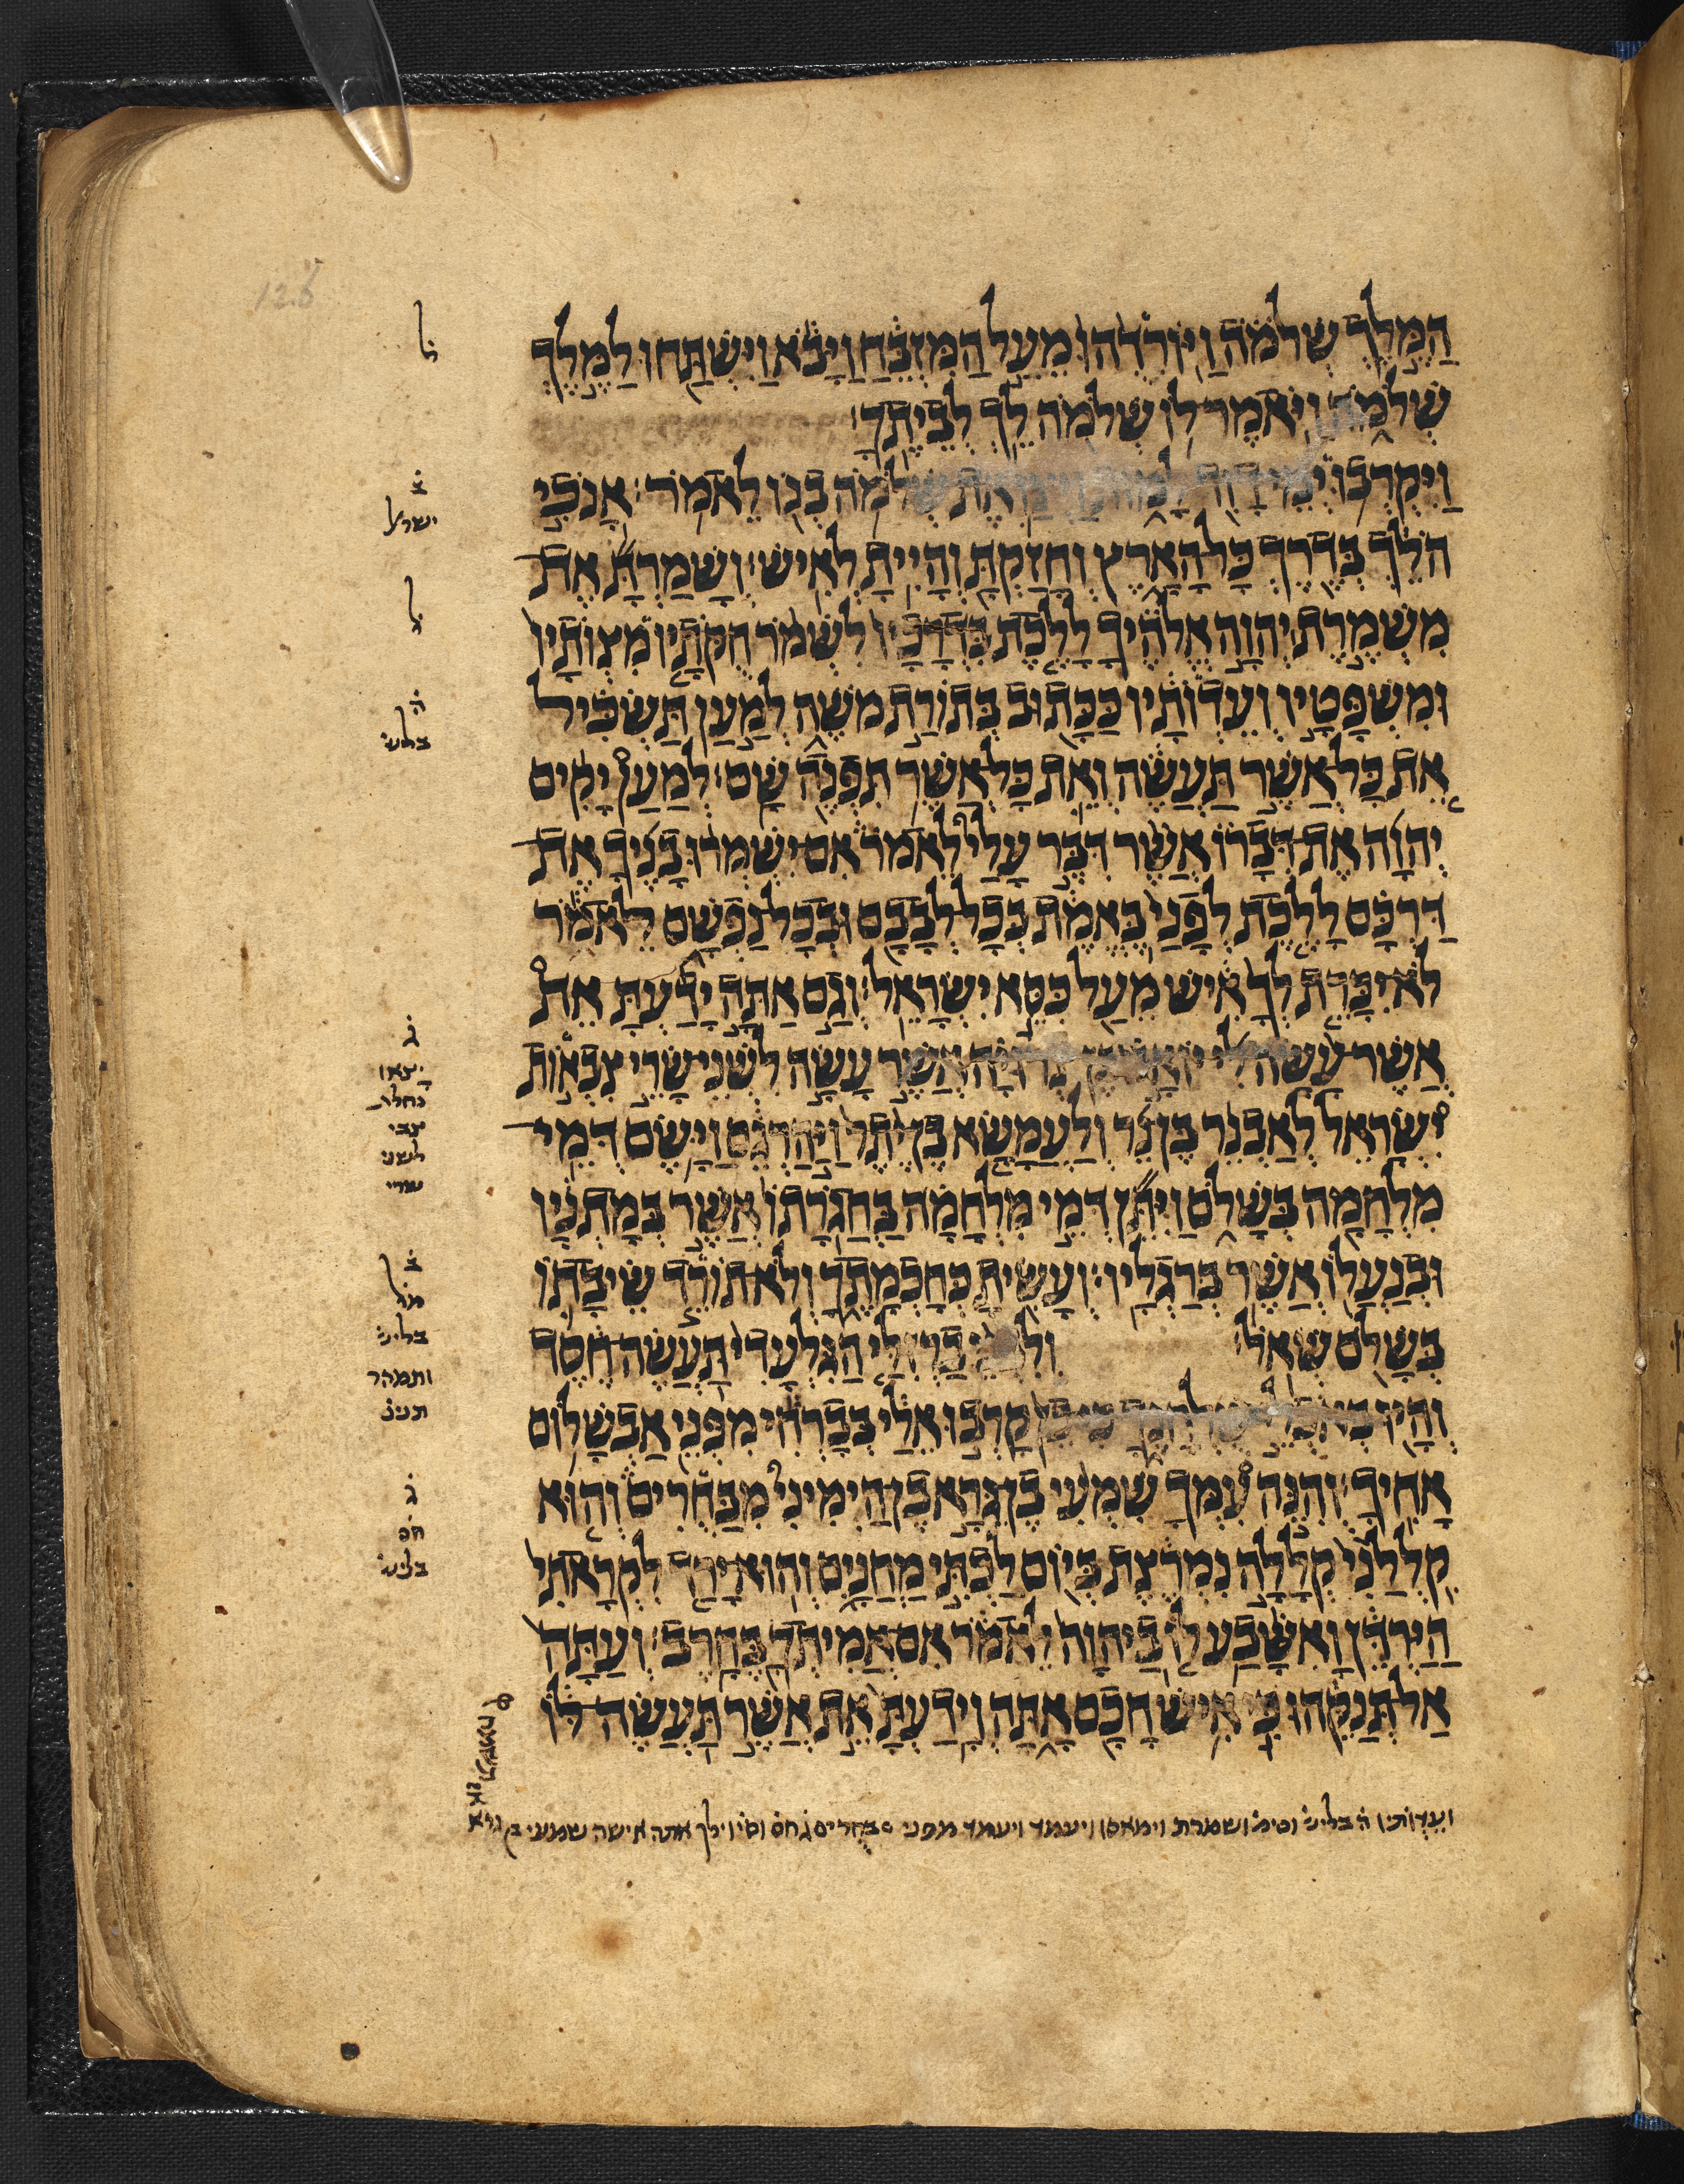 הַמֶּלֶךְ שְׁלֹמֹה וַיֹּרִדֻהוּ מֵעַל הַמִּזְבֵּחַ וַיָּבֹא וַיִּשְׁתַּחוּ לַמֶּלֶךְ
שְׁלֹמֹה וַיֹּאמֶר לוֹ שְׁלֹמֹה לֵךְ לְבֵיתֶךָ׃
וַיִּקְרְבוּ יְמֵי דָוִד לָמוּת וַיְצַו אֶת שְׁלֹמֹה בְנוֹ לֵאמֹר׃ אָנֹכִי
הֹלֵךְ בְּדֶרֶךְ כָּל הָאָרֶץ וְחָזַקְתָּ וְהָיִיתָ לְאִישׁ׃ וְשָׁמַרְתָּ אֶת
מִשְׁמֶרֶת יְהוָה אֱלֹהֶיךָ לָלֶכֶת בִּדְרָכָיו לִשְׁמֹר חֻקֹּתָיו מִצְוֹתָיו
וּמִשְׁפָּטָיו וְעֵדְוֹתָיו כַּכָּתוּב בְּתוֹרַת מֹשֶׁה לְמַעַן תַּשְׂכִּיל
אֵת כָּל אֲשֶׁר תַּעֲשֶׂה וְאֵת כָּל אֲשֶׁר תִּפְנֶה שָׁם׃ לְמַעַן יָקִים
יְהוָה אֶת דְּבָרוֹ אֲשֶׁר דִּבֶּר עָלַי לֵאמֹר אִם יִשְׁמְרוּ בָנֶיךָ אֶת
דַּרְכָּם לָלֶכֶת לְפָנַי בֶּאֱמֶת בְּכָל לְבָבָם וּבְכָל נַפְשָׁם לֵאמֹר
לֹא יִכָּרֵת לְךָ אִישׁ מֵעַל כִּסֵּא יִשְׂרָאֵל׃ וְגַם אַתָּה יָדַעְתָּ אֵת
אֲשֶׁר עָשָׂה לִי יוֹאָב בֶּן צְרוּיָה אֲשֶׁר עָשָׂה לִשְׁנֵי שָׂרֵי צִבְאוֹת
יִשְׂרָאֵל לְאַבְנֵר בֶּן נֵר וְלַעֲמָשָׂא בֶן יֶתֶר וַיַּהַרְגֵם וַיָּשֶׂם דְּמֵי
מִלְחָמָה בְּשָׁלֹם וַיִּתֵּן דְּמֵי מִלְחָמָה בַּחֲגֹרָתוֹ אֲשֶׁר בְּמָתְנָיו
וּבְנַעֲלוֹ אֲשֶׁר בְּרַגְלָיו׃ וְעָשִׂיתָ כְּחָכְמָתֶךָ וְלֹא תוֹרֵד שֵׂיבָתוֹ
בְּשָׁלֹם שְׁאֹל׃ וְלִבְנֵי בַרְזִלַּי הַגִּלְעָדִי תַּעֲשֶׂה חֶסֶד
וְהָיוּ בְּאֹכְלֵי שֻׁלְחָנֶךָ כִּי כֵן קָרְבוּ אֵלַי בְּבָרְחִי מִפְּנֵי אַבְשָׁלוֹם
אָחִיךָ׃ וְהִנֵּה עִמְּךָ שִׁמְעִי בֶן גֵּרָא בֶן הַיְמִינִי מִבַּחֻרִים וְהוּא
קִלְלַנִי קְלָלָה נִמְרֶצֶת בְּיוֹם לֶכְתִּי מַחֲנָיִם וְהוּא יָרַד לִקְרָאתִי
הַיַּרְדֵּן וָאֶשָּׁבַע לוֹ בַיהוָה לֵאמֹר אִם אֲמִיתְךָ בֶּחָרֶב׃ וְעַתָּה
אַל תְּנַקֵּהוּ כִּי אִישׁ חָכָם אָתָּה וְיָדַעְתָּ אֵת אֲשֶׁר תַּעֲשֶׂה לּוֹ
ל
ב
ישראל
ל
ה
בליש
ג
לשני
ב
ותמהר
ג
חס
בליש
ושמרת וימאסו ויעמד ויעמד מפני